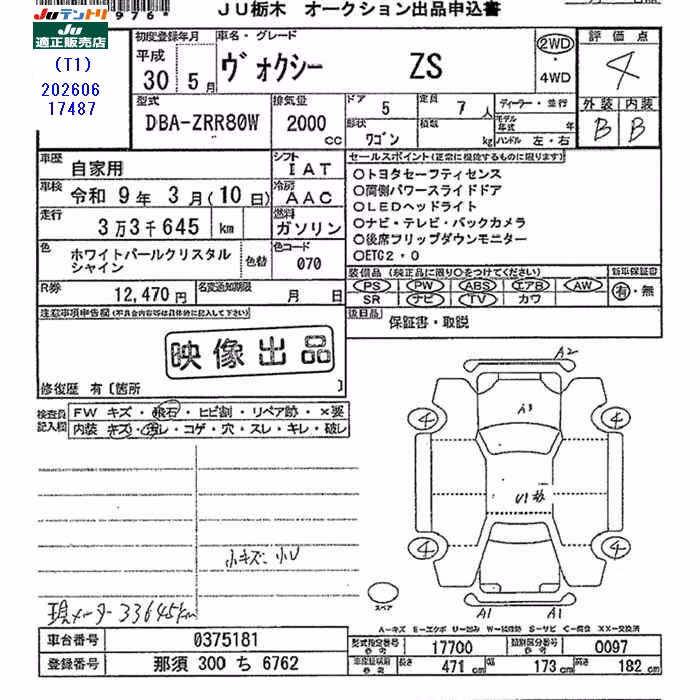 JU栃木 オークション出品申込書
976
JUテントリ
適正販売店
(T1)
202606
17487
初度登録年月
平成
30 5月
車名・グレード
ヴォクシー ZS
2WD
・
4WD
評価点
4
外装 内装
B B
型式
DBA-ZRR80W
排気量
2000
cc
ドア
5
定員
7人
形状
ワゴン
積数
kg
ディーラー・並行
モデル年式 年
ハンドル 左・右
車歴
自家用
シフト
IAT
車検
令和 9年 3月(10日)
冷房
AAC
走行
3万3千645 km
燃料
ガソリン
色
ホワイトパールクリスタルシャイン
色替
色コード
070
R券
12,470円
名変通知期限
月 日
セールスポイント(正常に機能するものに限ります)
○トヨタセーフティセンス
○両側パワースライドドア
○LEDヘッドライト
○ナビ・テレビ・バックカメラ
○後席フリップダウンモニター
○ETC2・0
装備品(純正品に限り○をつけてください)
PS PW ABS エアB AW
SR ナビ TV カワ
新車保証書
有・無
後日品
保証書・取説
注意事項申告欄(不具合内容等は具体的に記入して下さい)
映像出品
修復歴 有〔箇所 〕
検査員記入欄
FW キズ・飛石・ヒビ割・リペア跡・×要
内装 キズ・汚レ・コゲ・穴・スレ・キレ・破レ
小キズ・小U
現メーター 33645km
A2
A3
U1
4
4
4
4
A1
A1
スペア
A-キズ E-エクボ U-凹み W-補修跡 S-サビ C-腐食 XX-交換済
車台番号 0375181
登録番号 那須 300 ち 6762
型式指定番号
参考
17700
類別区分番号
参考
0097
車検証記載
参考
長さ 471 cm 幅 173 cm 高さ 182 cm